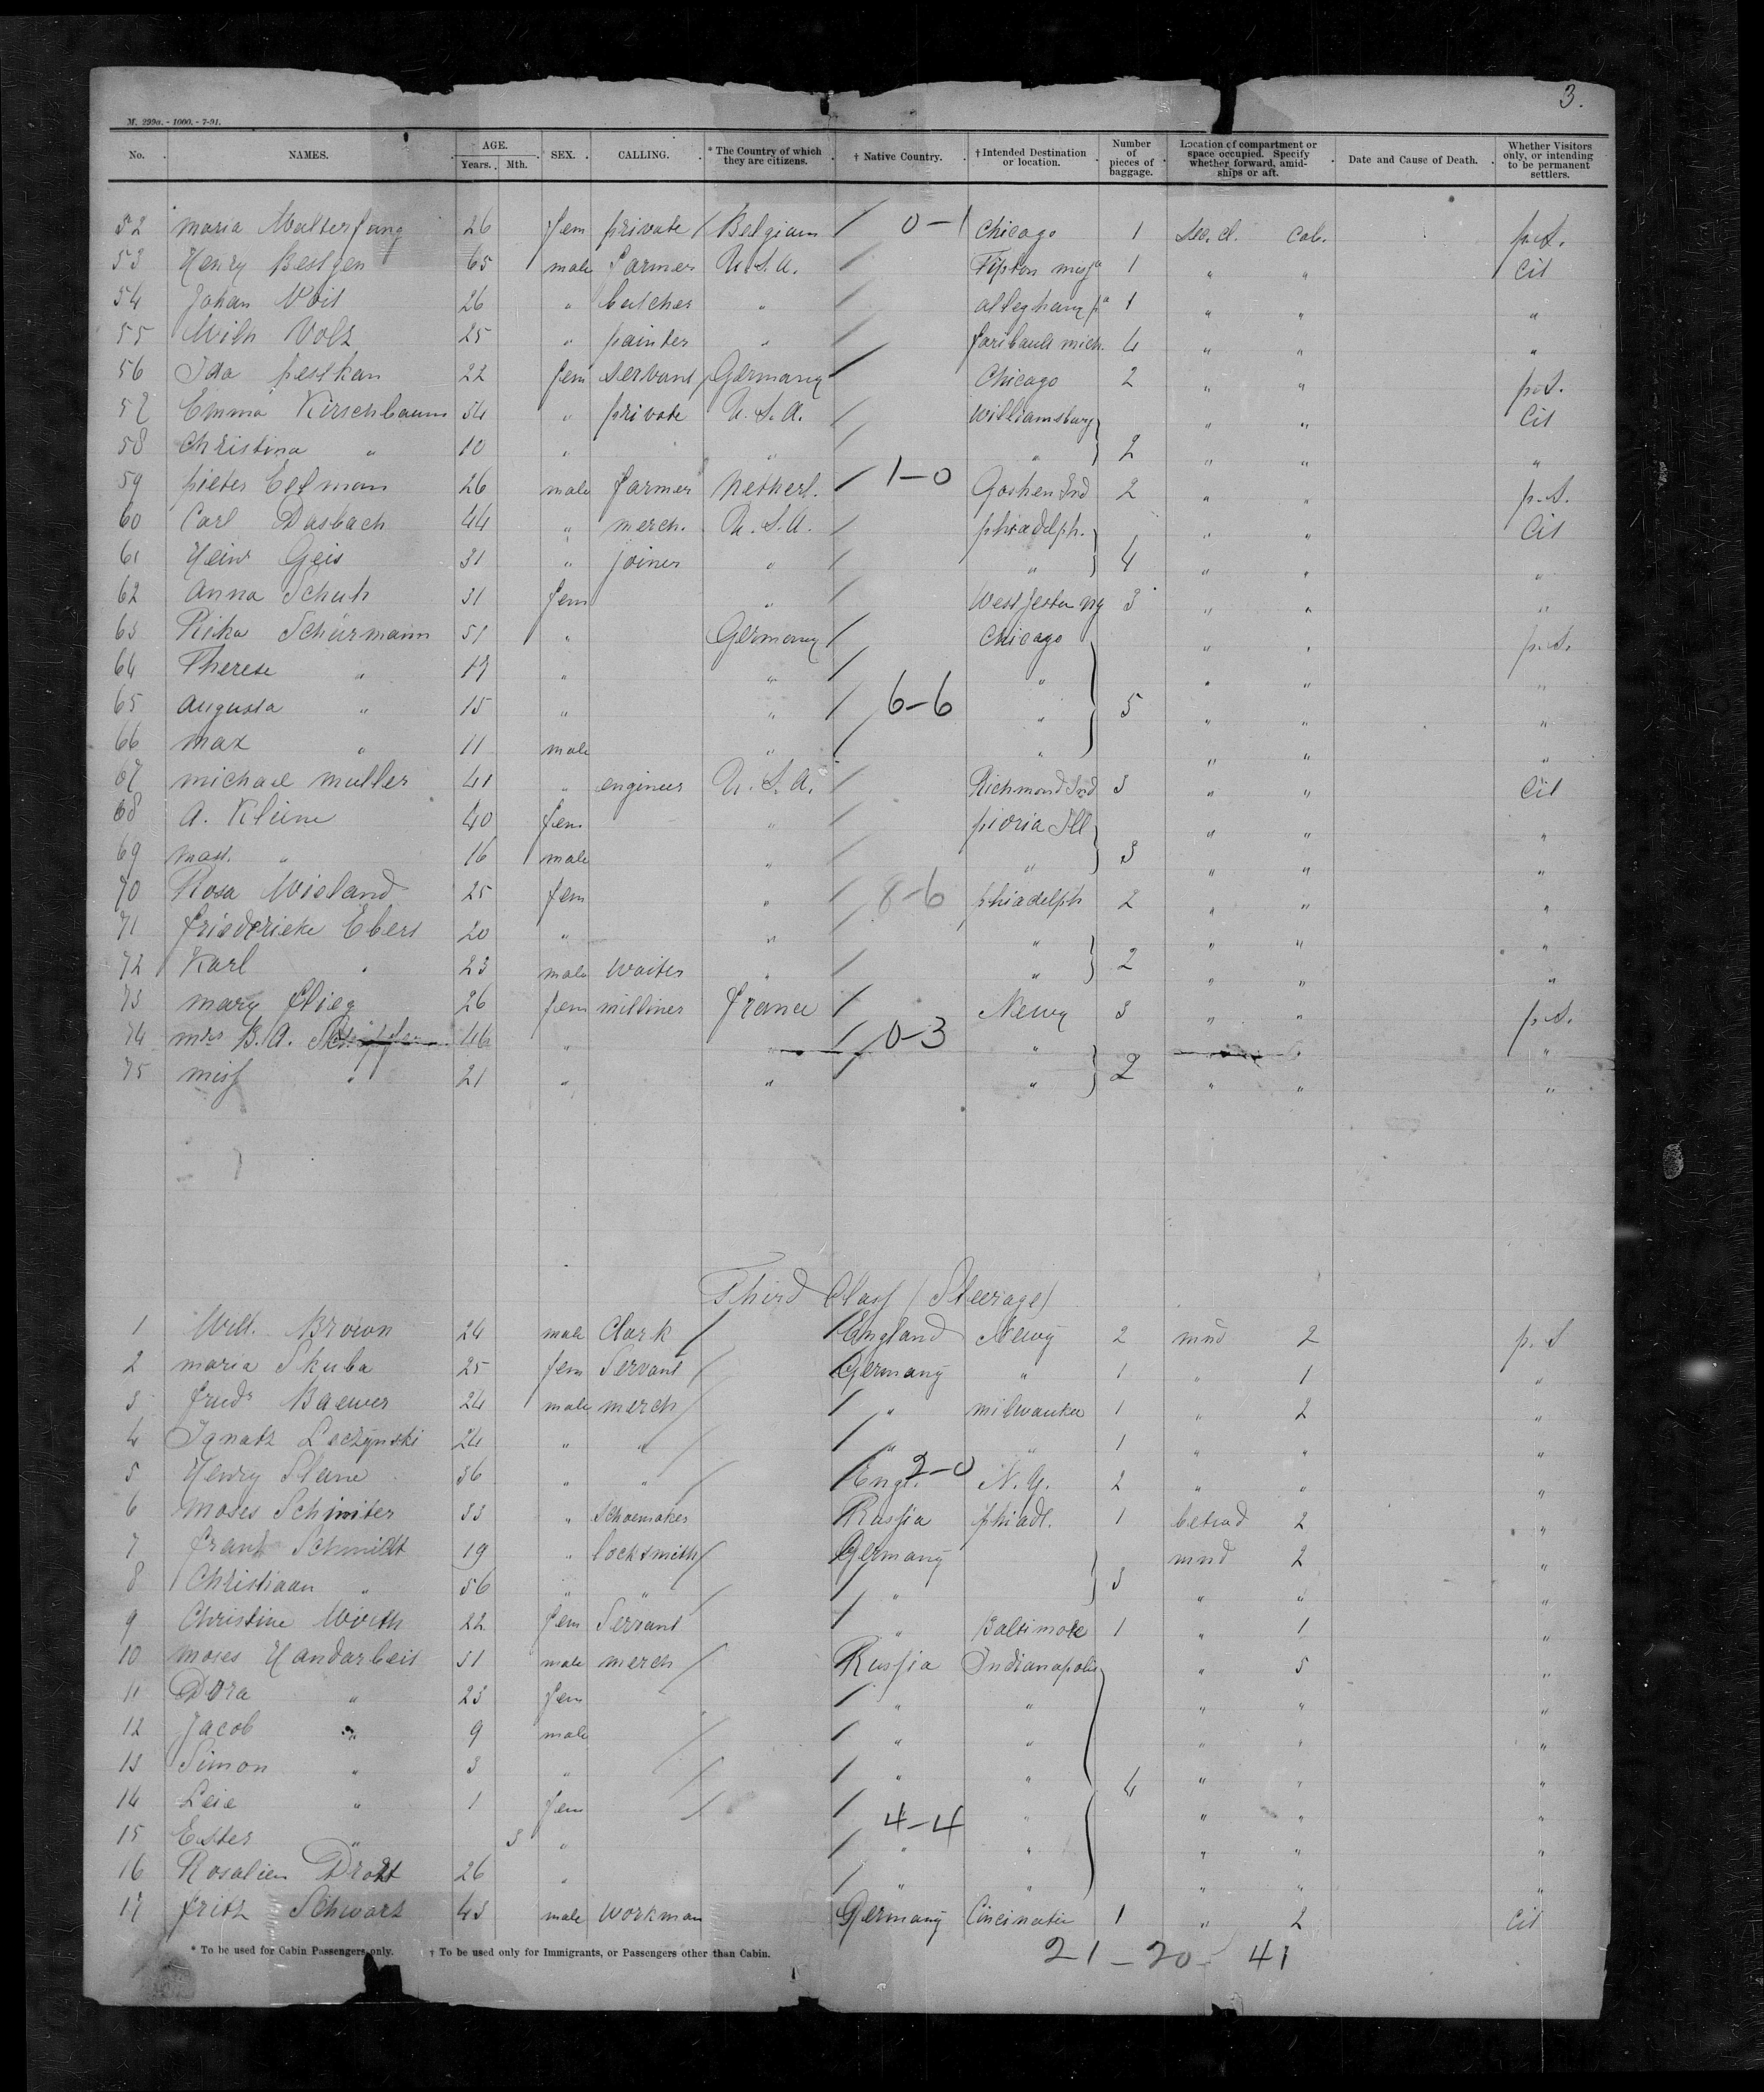 3.
M. 299a. - 1000. - 7-91.
No. NAMES. AGE. Years. Mth. SEX. CALLING. * The Country of which they are citizens. † Native Country. † Intended Destination or location. Number of pieces of baggage. Location of compartment or space occupied. Specify whether forward, amidships or aft. Date and Cause of Death. Whether Visitors only, or intending to be permanent settlers.
52 maria 26 fem private Belgium 0-1 Chicago 1 Sec. cl. Cab. p.S.
53 Henry Bestgen 65 male farmer U.S.A. Tipton 1 " " Cit
54 Johan Voit 26 " butcher " alleghany pa 1 " " "
55 Wilh Volz 25 " painter " faribault mich. 4 " " "
56 Ida pestkan 22 fem servant Germany Chicago 2 " " p.S.
57 Emma Kirschbaum 54 " private U.S.A. Williamsburg " " Cit
58 Christina " 10 " " " 2 " " "
59 pieter Eelman 26 male farmer Netherl. 1-0 Goshen Ind 2 " " p.S.
60 Carl Dasbach 44 " merch. U.S.A. phiadelph. " " Cit
61 Heinr Geis 31 " joiner " " 4 " " "
62 Anna Schuh 31 fem " 3 " " "
63 Rika Schürmann 51 " Germany Chicago " " p.S.
64 Therese " 17 " " " " " "
65 Augusta " 15 " " 6-6 " 5 " " "
66 max " 11 male " " " " "
67 michael muller 41 " engineer U.S.A. Richmond Ind 3 " " Cit
68 A. Kleine 40 fem " pioria Ill " " "
69 " 16 male " " 3 " " "
70 Rosa Wieland 25 fem " 8-6 phiadelph 2 " " "
71 friedrieke Ebert 20 " " " " " "
72 Karl " 23 male waiter " " 2 " " "
73 mary flieg 26 fem milliner france Newy 3 " " p.S.
74 mrs B. A. 46 " " 0-3 " "
75 miss " 21 " " " 2 " " "
Third Class (Steerage)
1 Will. Brown 24 male Clark England Newy 2 mnd 2 p.S
2 maria Skuba 25 fem Servant Germany " 1 " 1 "
3 friedr Baewer 24 male merch " milwaukee 1 " 2 "
4 Ignatz Leczynski 24 " " " " 1 " " "
5 Henry Stane 36 " " Engl. 2-0 N.Y. 2 " " "
6 Moses 33 " Schoemaker Russia phiadl. 1 betwd 2 "
7 frank Schmidt 19 " locksmith Germany mnd 2 "
8 Christiaan " 56 " " " 3 " " "
9 Christine Wirth 22 fem Servant " Baltimore 1 " 1 "
10 moses Handarbeit 31 male merch Russia Indianapolis " 5 "
11 Dora " 23 fem " " " " "
12 Jacob " 9 male " " " " "
13 Simon " 3 " " " 4 " " "
14 Leie " 1 fem 4-4 " " " "
15 Ester " 3 " " " " " "
16 Rosalien 26 " " " " " "
17 fritz Schwarz 43 male workman Germany Cincinatie 1 " 2 Cit
* To be used for Cabin Passengers only. † To be used only for Immigrants, or Passengers other than Cabin.
21-20- 41